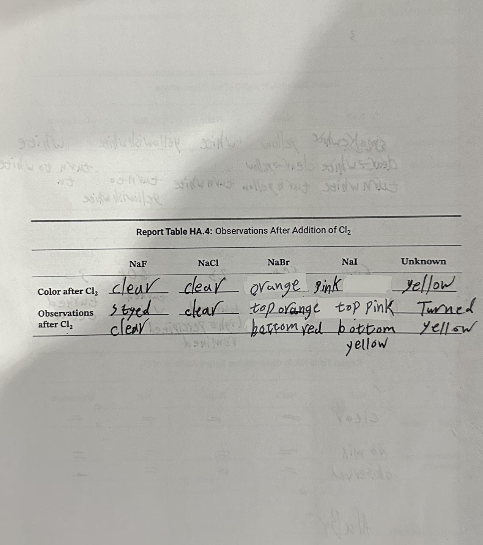 Report Table HA.4: Observations After Addition of Cl₂
NaF NaCl NaBr NaI Unknown
Color after Cl₂ clear clear orange pink yellow
Observations after Cl₂ stged clear top orange top pink Turned
clear bottom red bottom yellow
yellow